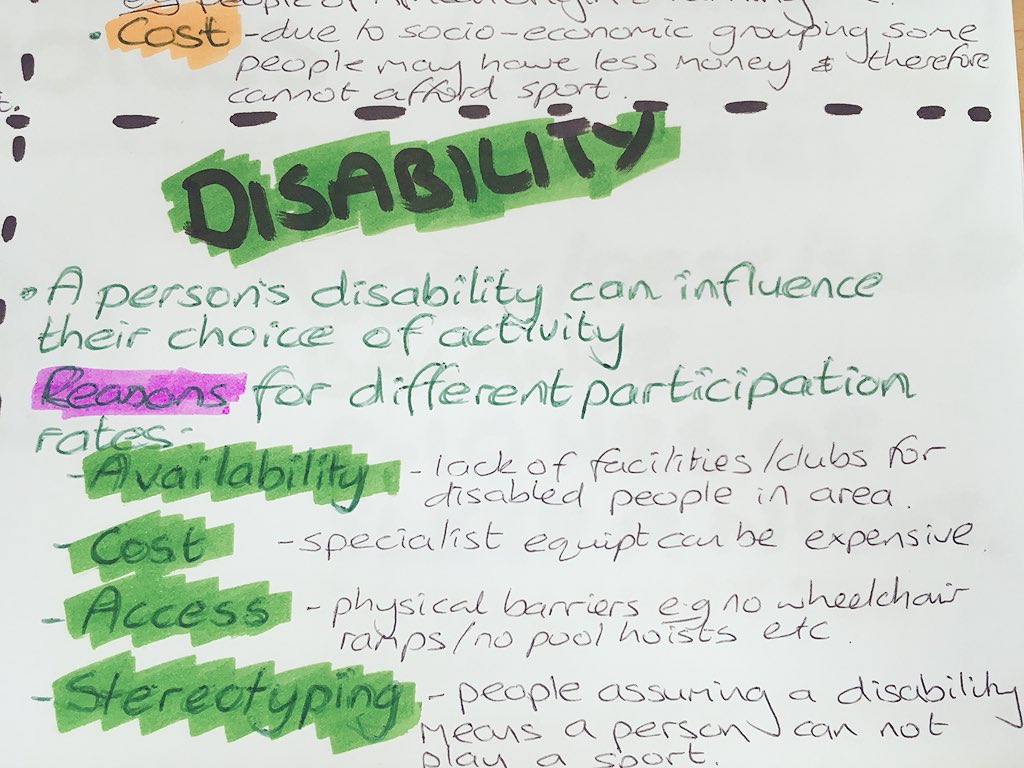 e.g people of
• Cost - due to socio-economic grouping some
people may have less money & therefore
cannot afford sport.
t.
DISABILITY
• A person's disability can influence
their choice of activity
Reasons for different participation
rates:
- Availability - lack of facilities/clubs for
disabled people in area.
- Cost - specialist equipt can be expensive.
- Access - physical barriers e.g no wheelchair
ramps/no pool hoists etc.
- Stereotyping - people assuming a disability
means a person can not
play a sport.